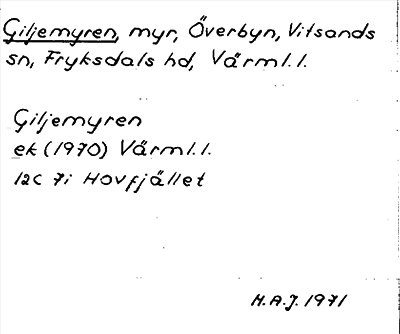 Giljemyren, myr, Överbyn, Vitsands
sn, Fryksdals hd, Värml. l.
Giljemyren
ek (1970) Värml. l.
12C 7i Hovfjället
H.A.J. 1971